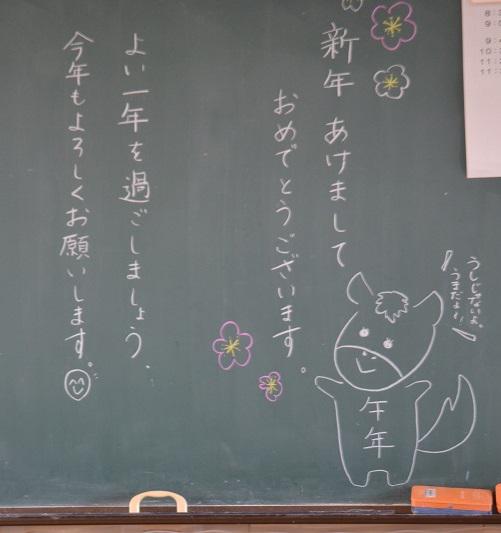 新年 あけまして
おめでとうございます。
よい一年を過ごしましょう.
今年もよろしくお願いします。
うしじゃないよ。
うまだよ!!
午年
8:
9:
9:4
10:
11:
11: